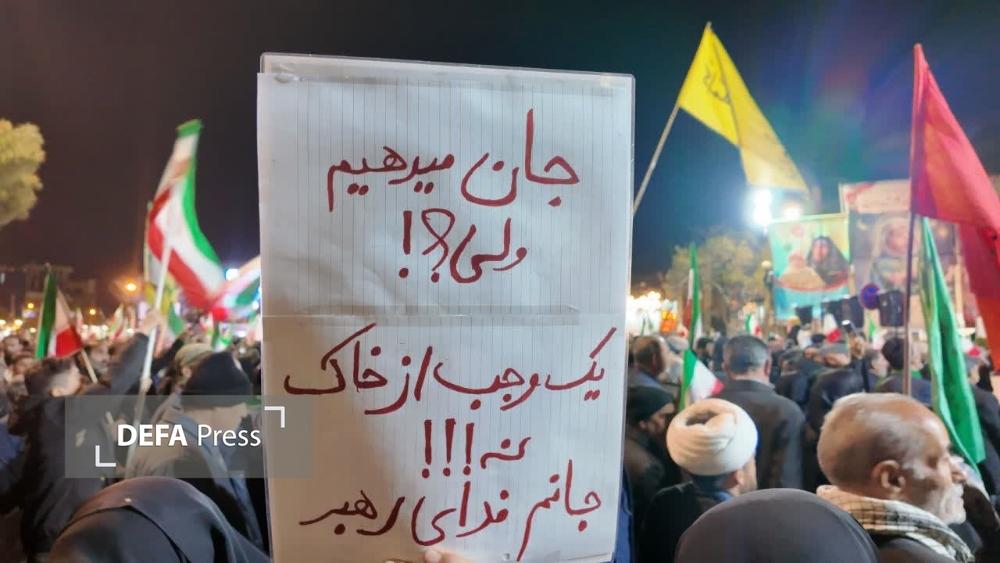 جان میدهیم
ولی؟!
یک وجب از خاک
نه!!!
جانم فدای رهبر
DEFA Press